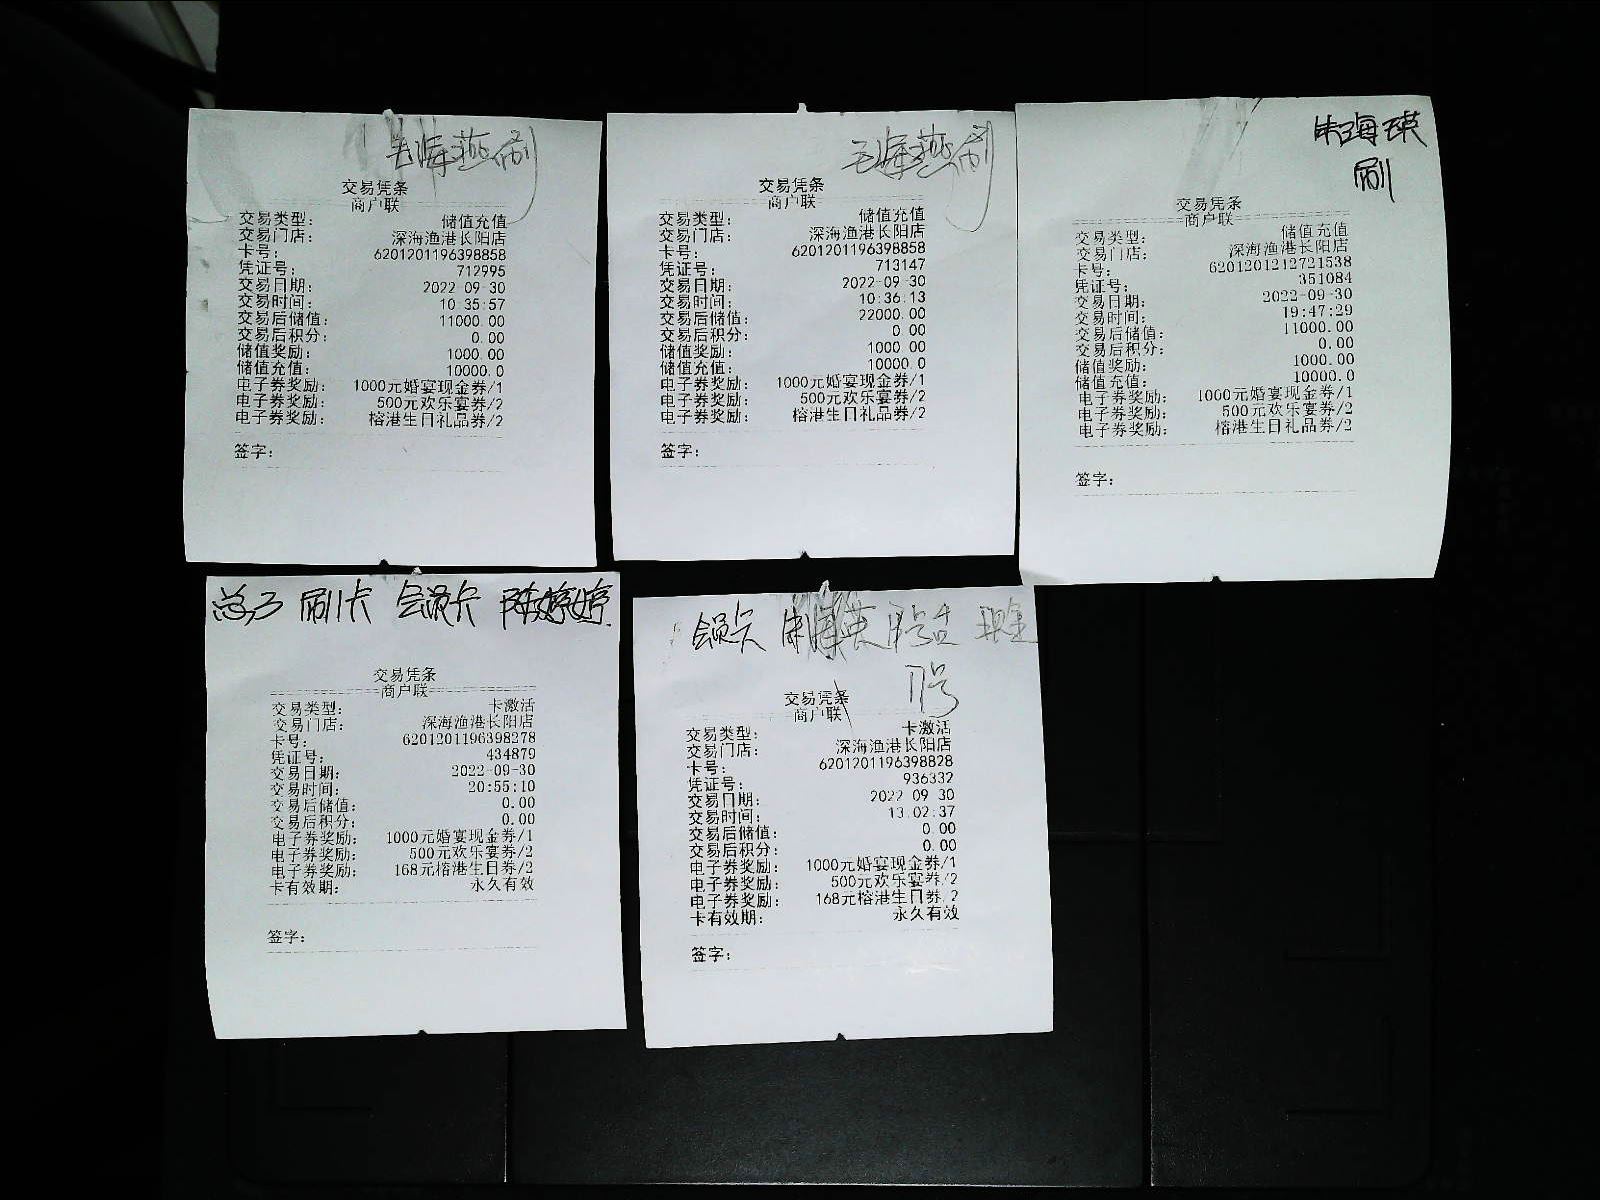 毛海燕刷
交易凭条
商户联
交易类型： 储值充值
交易门店： 深海渔港长阳店
卡号： 6201201196398858
凭证号： 712995
交易日期： 2022-09-30
交易时间： 10:35:57
交易后储值： 11000.00
交易后积分： 0.00
储值奖励： 1000.00
储值充值： 10000.0
电子券奖励： 1000元婚宴现金券/1
电子券奖励： 500元欢乐宴券/2
电子券奖励： 榕港生日礼品券/2
签字：
毛海燕刷
交易凭条
商户联
交易类型： 储值充值
交易门店： 深海渔港长阳店
卡号： 6201201196398858
凭证号： 713147
交易日期： 2022-09-30
交易时间： 10:36:13
交易后储值： 22000.00
交易后积分： 0.00
储值奖励： 1000.00
储值充值： 10000.0
电子券奖励： 1000元婚宴现金券/1
电子券奖励： 500元欢乐宴券/2
电子券奖励： 榕港生日礼品券/2
签字：
朱海瑛
刷
交易凭条
商户联
交易类型： 储值充值
交易门店： 深海渔港长阳店
卡号： 6201201212721538
凭证号： 351084
交易日期： 2022-09-30
交易时间： 19:47:29
交易后储值： 11000.00
交易后积分： 0.00
储值奖励： 1000.00
储值充值： 10000.0
电子券奖励： 1000元婚宴现金券/1
电子券奖励： 500元欢乐宴券/2
电子券奖励： 榕港生日礼品券/2
签字：
刷卡 会员卡 陈婷婷
交易凭条
商户联
交易类型： 卡激活
交易门店： 深海渔港长阳店
卡号： 6201201196398278
凭证号： 434879
交易日期： 2022-09-30
交易时间： 20:55:10
交易后储值： 0.00
交易后积分： 0.00
电子券奖励： 1000元婚宴现金券/1
电子券奖励： 500元欢乐宴券/2
电子券奖励： 168元榕港生日券/2
卡有效期： 永久有效
签字：
会员卡 现金
交易凭条
商户联
交易类型： 卡激活
交易门店： 深海渔港长阳店
卡号： 6201201196398828
凭证号： 936332
交易日期： 2022-09-30
交易时间： 13:02:37
交易后储值： 0.00
交易后积分： 0.00
电子券奖励： 1000元婚宴现金券/1
电子券奖励： 500元欢乐宴券/2
电子券奖励： 168元榕港生日券/2
卡有效期： 永久有效
签字：